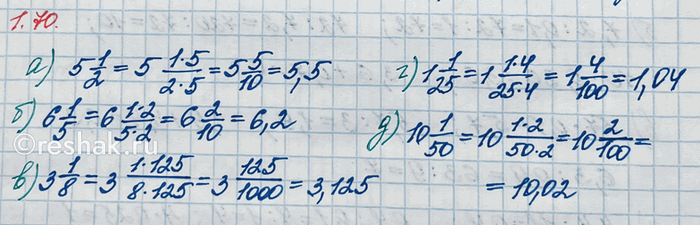 1.70.
а) 5 1/2 = 5 (1·5)/(2·5) = 5 5/10 = 5,5
б) 6 1/5 = 6 (1·2)/(5·2) = 6 2/10 = 6,2
в) 3 1/8 = 3 (1·125)/(8·125) = 3 125/1000 = 3,125
г) 1 1/25 = 1 (1·4)/(25·4) = 1 4/100 = 1,04
д) 10 1/50 = 10 (1·2)/(50·2) = 10 2/100 =
= 10,02
©reshak.ru